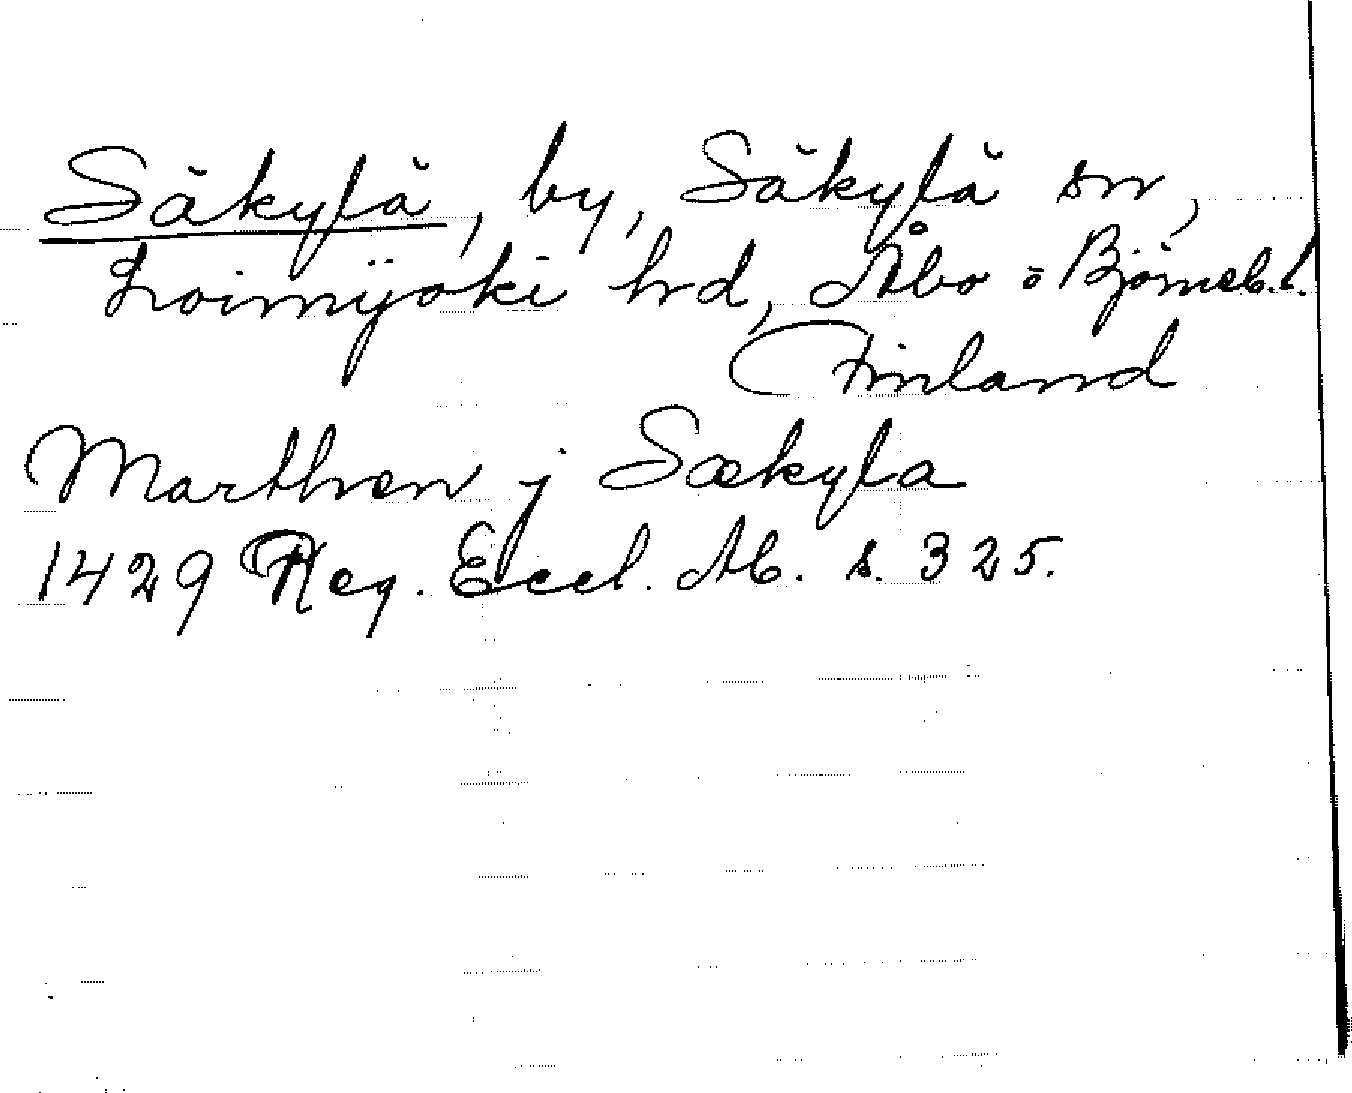 Säkylä, by, Säkylä sn,
Loimijoki hd, Åbo o Björneb. l.
Finland
Marthen j Sækyla
1429 Reg. Eccl. Ab. s. 325.